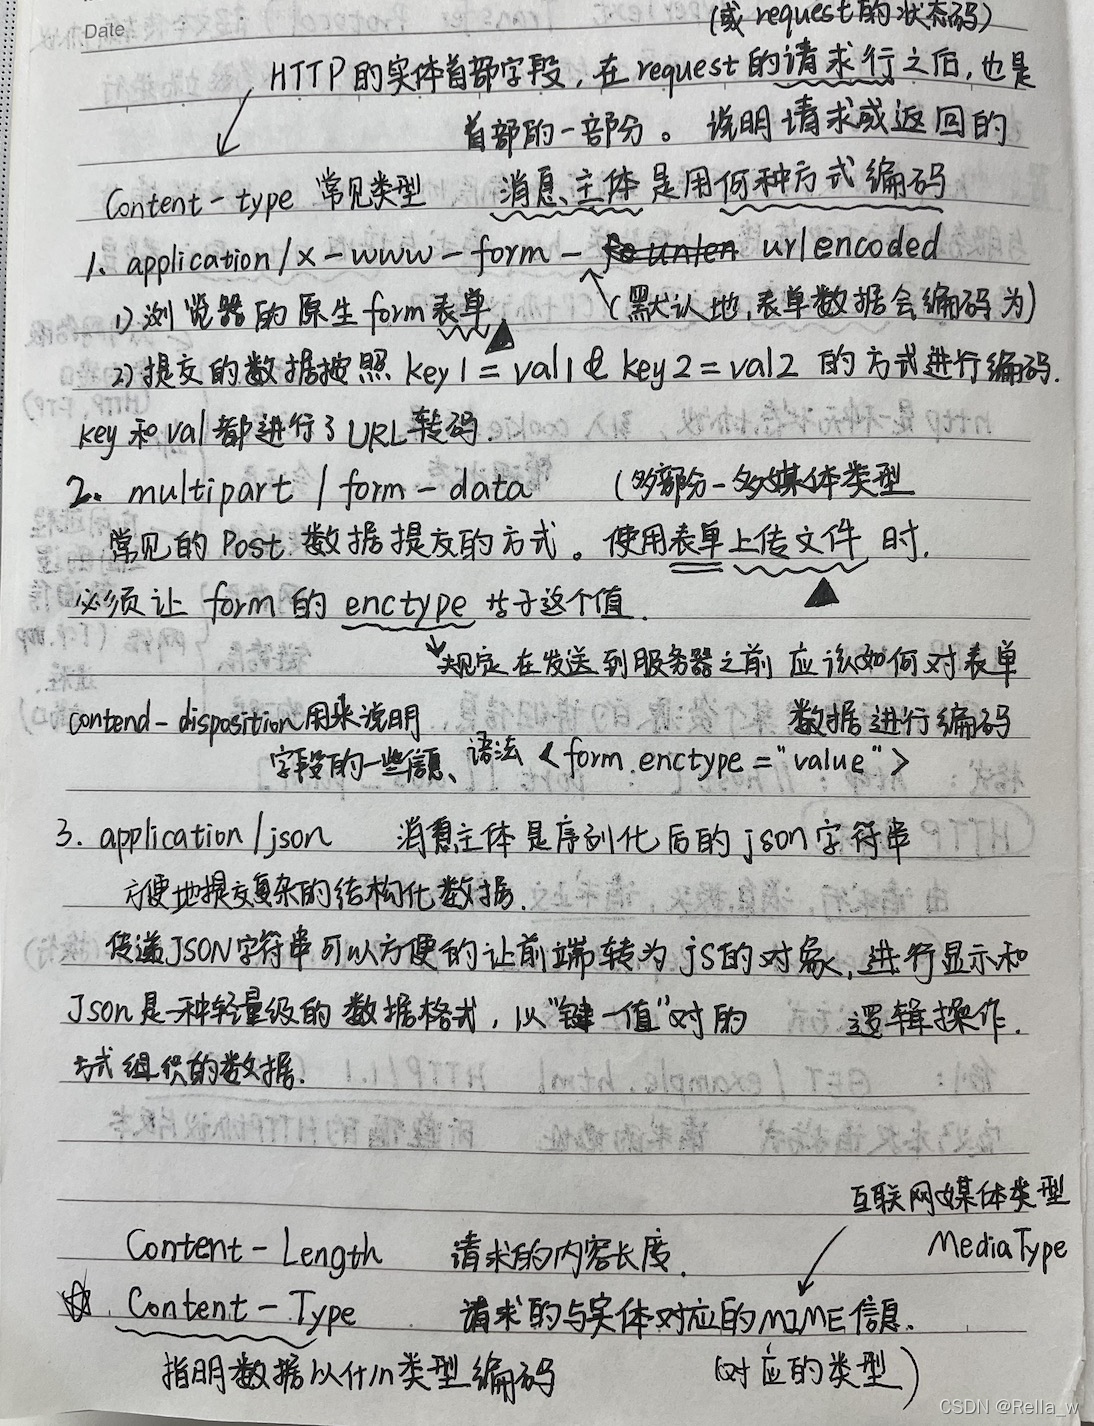 Date
(或request的状态码)
HTTP的实体首部字段,在request的请求行之后,也是
首部的一部分。 说明请求或返回的
Content-type 常见类型 消息主体是用何种方式编码
1. application/x-www-form- urlencoded
1) 浏览器的原生form表单 (默认地,表单数据会编码为)
2) 提交的数据按照 key1=val1&key2=val2 的方式进行编码.
key和val都进行了URL转码.
2. multipart/form-data (多部分-多媒体类型
常见的Post数据提交的方式。使用表单上传文件时,
必须让 form的 enctype 等于这个值.
规定在发送到服务器之前应该如何对表单
contend-disposition用来说明 数据进行编码
字段的一些信息、语法 <form.enctype="value">
3. application/json 消息主体是序列化后的json字符串
方便地提交复杂的结构化数据.
传递JSON字符串可以方便的让前端转为js的对象,进行显示和
Json是一种轻量级的数据格式,以"键-值"对的 逻辑操作.
方式组织的数据.
互联网媒体类型
Content-Length 请求的内容长度. MediaType
Content-Type 请求的与实体对应的MIME信息.
指明数据以什么类型编码 (对应的类型)
CSDN @Rella_w